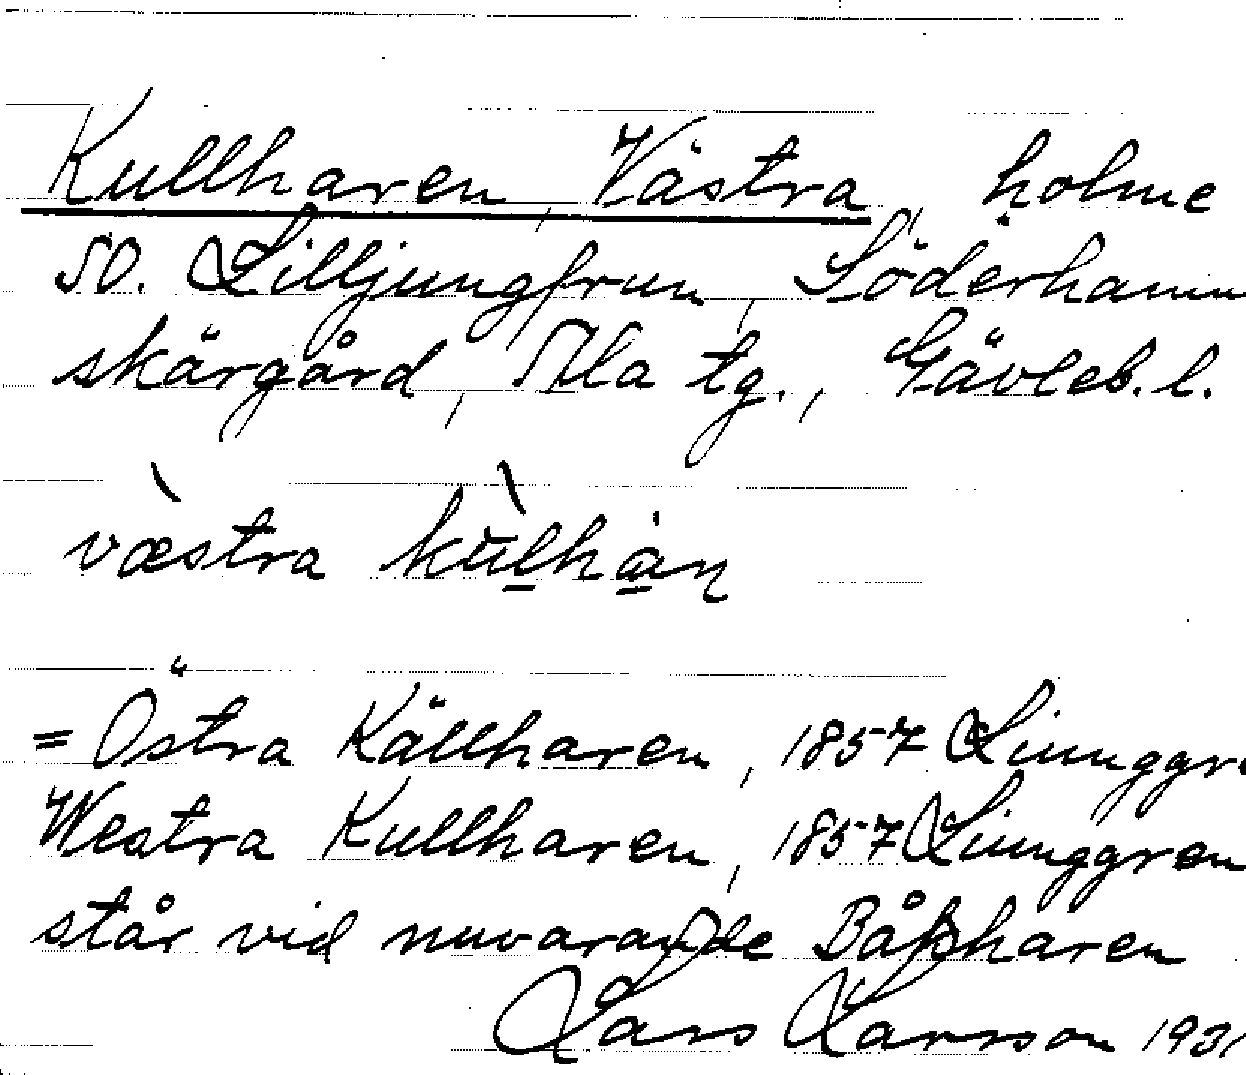 Kullharen, Västra, holme
SO. Lilljungfrun, Söderhamn
skärgård, Ala tg., Gävleb. l.
västra kulhàn
= Östra Källharen, 1857 Ljunggr
Westra Kullharen, 1857 Ljunggren
står vid nuvarande Båkharen
Lars Larsson 193